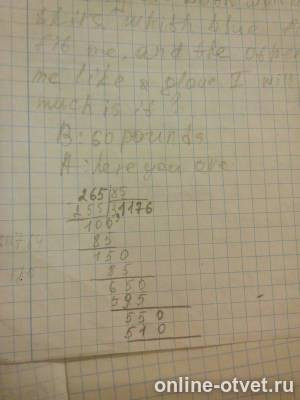 skirt, which blue
fit me, and the other
me like a glove I will
much is it?
B: 50 pounds
A: here you are
265|85
255|3,1176
100
85
150
85
650
595
550
510
online-otvet.ru